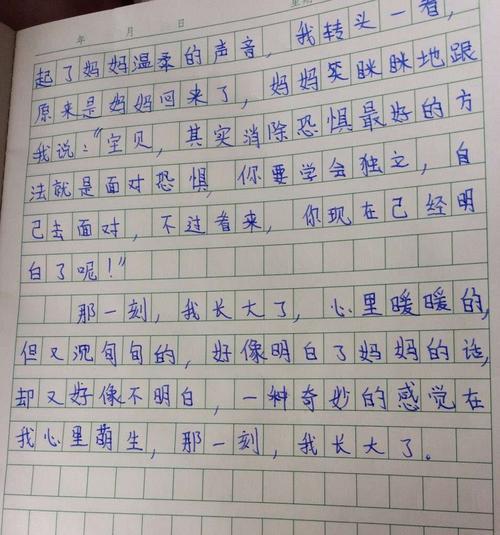 年 月 日 星期
起了妈妈温柔的声音，我转头一看，
原来是妈妈回来了，妈妈笑眯眯地跟
我说：“宝贝，其实消除恐惧最好的方
法就是面对恐惧，你要学会独立，自
己去面对，不过看来，你现在已经明
白了呢！”
那一刻，我长大了，心里暖暖的，
但又沉甸甸的，好像明白了妈妈的话，
却又好像不明白，一种奇妙的感觉在
我心里萌生，那一刻，我长大了。